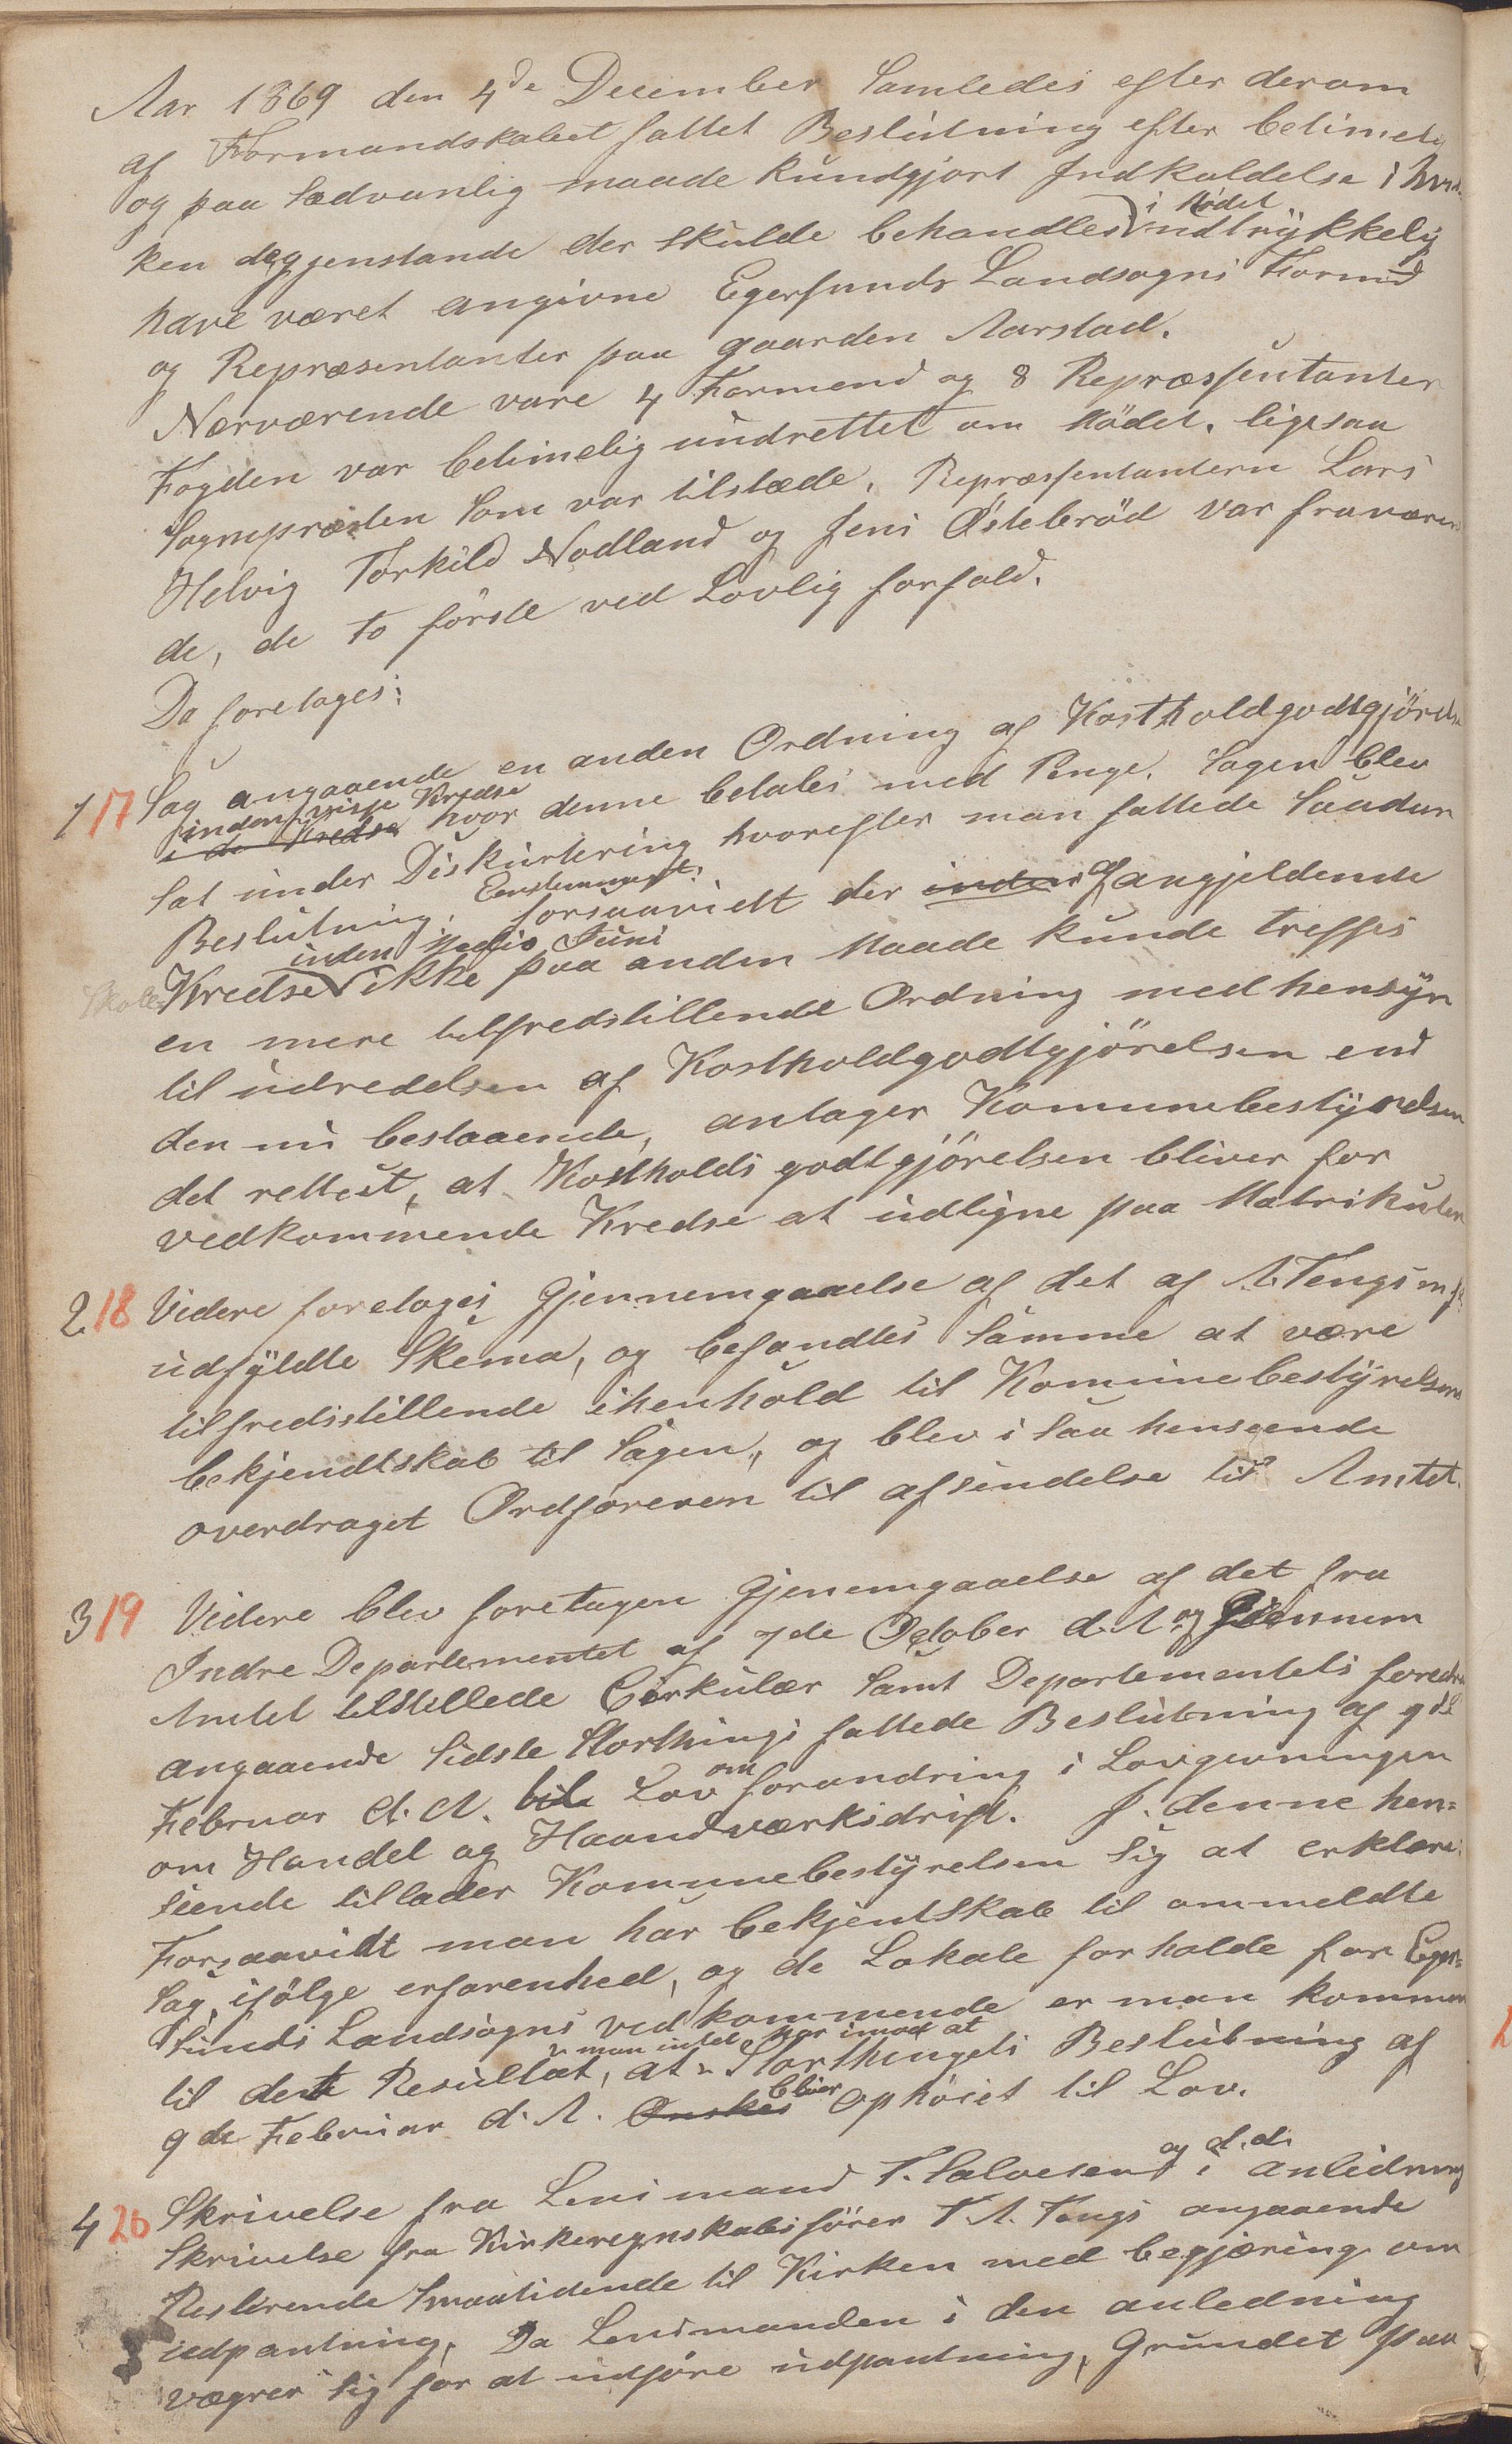 Aar 1869 den 4de December Samledes efter derom
af Formandskabet fattet Beslutning efter betimelig
og paa Sædvanlig maade Kundgjort Indkaldelse i hvil
ken de gjenstande der skulde behandles i Mödet udtrykkelig
have været angivne Egersunds Landsogns Formd
og Repræsentanter paa gaarden Aarstad.
Nærværende vare 4 Formend og 8 Repræsentanter
Fogden var betimelig undrettet om Mödet. ligesaa
Sognepræsten Som var tilstæde. Repræsentantern Lars
Helvig Torkild Nodland og Jens Østebröd var fraværen
de, de to förste ved Lovlig forfald.
Da foretoges:
1 17 Sag angaaende en anden Ordning af Kostholdgodtgjörelse
inden visse Kredse i de Kredse hvor denne betales med Penge. Sagen blev
Sat under Diskurtering hvorefter man fattede Saadan
Beslutning. Eenstemmigt: forsaavidt der inden af angjeldende
Skole Kredse inden Medio Juni ikke paa anden Maade kunde treffes
en mere tilfredstillende Ordning med hensyn
til udredelsen af Kostholdgodtgjörelsen end
den nu bestaaende, antager Komunebestyrelsen
det rettest, at Kostholds godtgjörelsen bliver for
vedkommende Kredse at udligne paa Matrikulen
2. 18 Videre foretoges Gjennemgaaelse af det af A. Tengs
udfyldte Skema, og befandtes Samme at være
tilfredistillende ihenhold til Komunebestyrelsens
bekjendtskab til Sagen, og blev i Saa henseende
overdraget Ordføreren til afsendelse til Amtet.
3 19 Videre blev foretagen Gjenemgaaelse af det fra
Indre Departementet af 7de October d. A. og Gjennem
Amtet tilstillede Cirkulær Samt Departementets foredra
angaaende Sidste Storthings fattede Beslutning af 9de
Februar d. A. til Lov om forandring i Lovgivningen
om Handel og Haandværksdrift. I denne hen=
seende tillader Komunebestyrelsen Sig at erklære:
Forsaavidt man har bekjentskab til ommeldte
Sag, ifölge erfarenhed, og de Lokale forholde for Eger=
sunds Landsogns vedkommende er man kommen
til dette Resultat, at man intet har imod at Storthingets Beslutning af
9de Februar d. A. Ønskes bliver ophöiet til Lov.
4 20 Skrivelse fra Lensmand T. Salvesen og d. d. i anledning
Skrivelse fra Kirkeregnskabsförer T. A. Tengs angaaende
Resterende Smaatidende til Kirken med begjæring om
udpantning. Da Lensmanden i den anledning
vægrer Sig for at udføre udpantning, Grundet paa